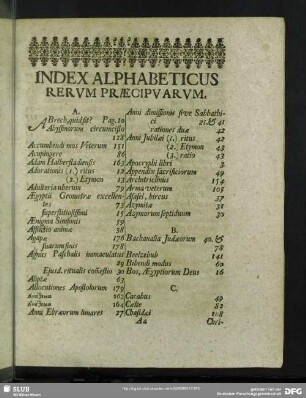 INDEX ALPHABETICUS
RERVM PRÆCIPVARVM.
A.
Abrech quid sit? Pag. 10
Abyssinorum circumcisio
128
Accumbendi mos Veterum 151
Acupingere 86
Adam Halberstadensis 163
Adorationis (1.) ritus 12
(2.) Etymon 13
Adulteria uberum 79
Ægyptii Geometræ excellen-
tes 73
superstitiosissimi 15
Ænigma Simsonis 59
Afflictio animæ 38
Agapæ 176
suarum finis 178
Agnus Paschalis immaculatus
29
Ejusd. ritualis comestio 30
Aliptæ 63
Allocutiones Apostolorum 179
162
164
Anni Ebræorum lunares 27
Anni dimissionis sive Sabbathi-
ci 21. & 41
rationes duæ 42
Anni Jubilæi (1.) ritus 42
(2.) Etymon 43
(3.) ratio 43
Apocryphi libri 3
Appendix sacrificiorum 49
Architriclinus 154
Arma veterum 105
Asasel, hircus 37
Azymitæ 31
Azymorum septiduum 30
B.
Bachanalia Judæorum 40. &
78
Beelzebub 141
Bibendi modus 60
Bos, Ægyptiorum Deus 16
C.
Carabus 49
Cæste 82
Chasidæi 108
A4 Chri-
SLUB
DFG